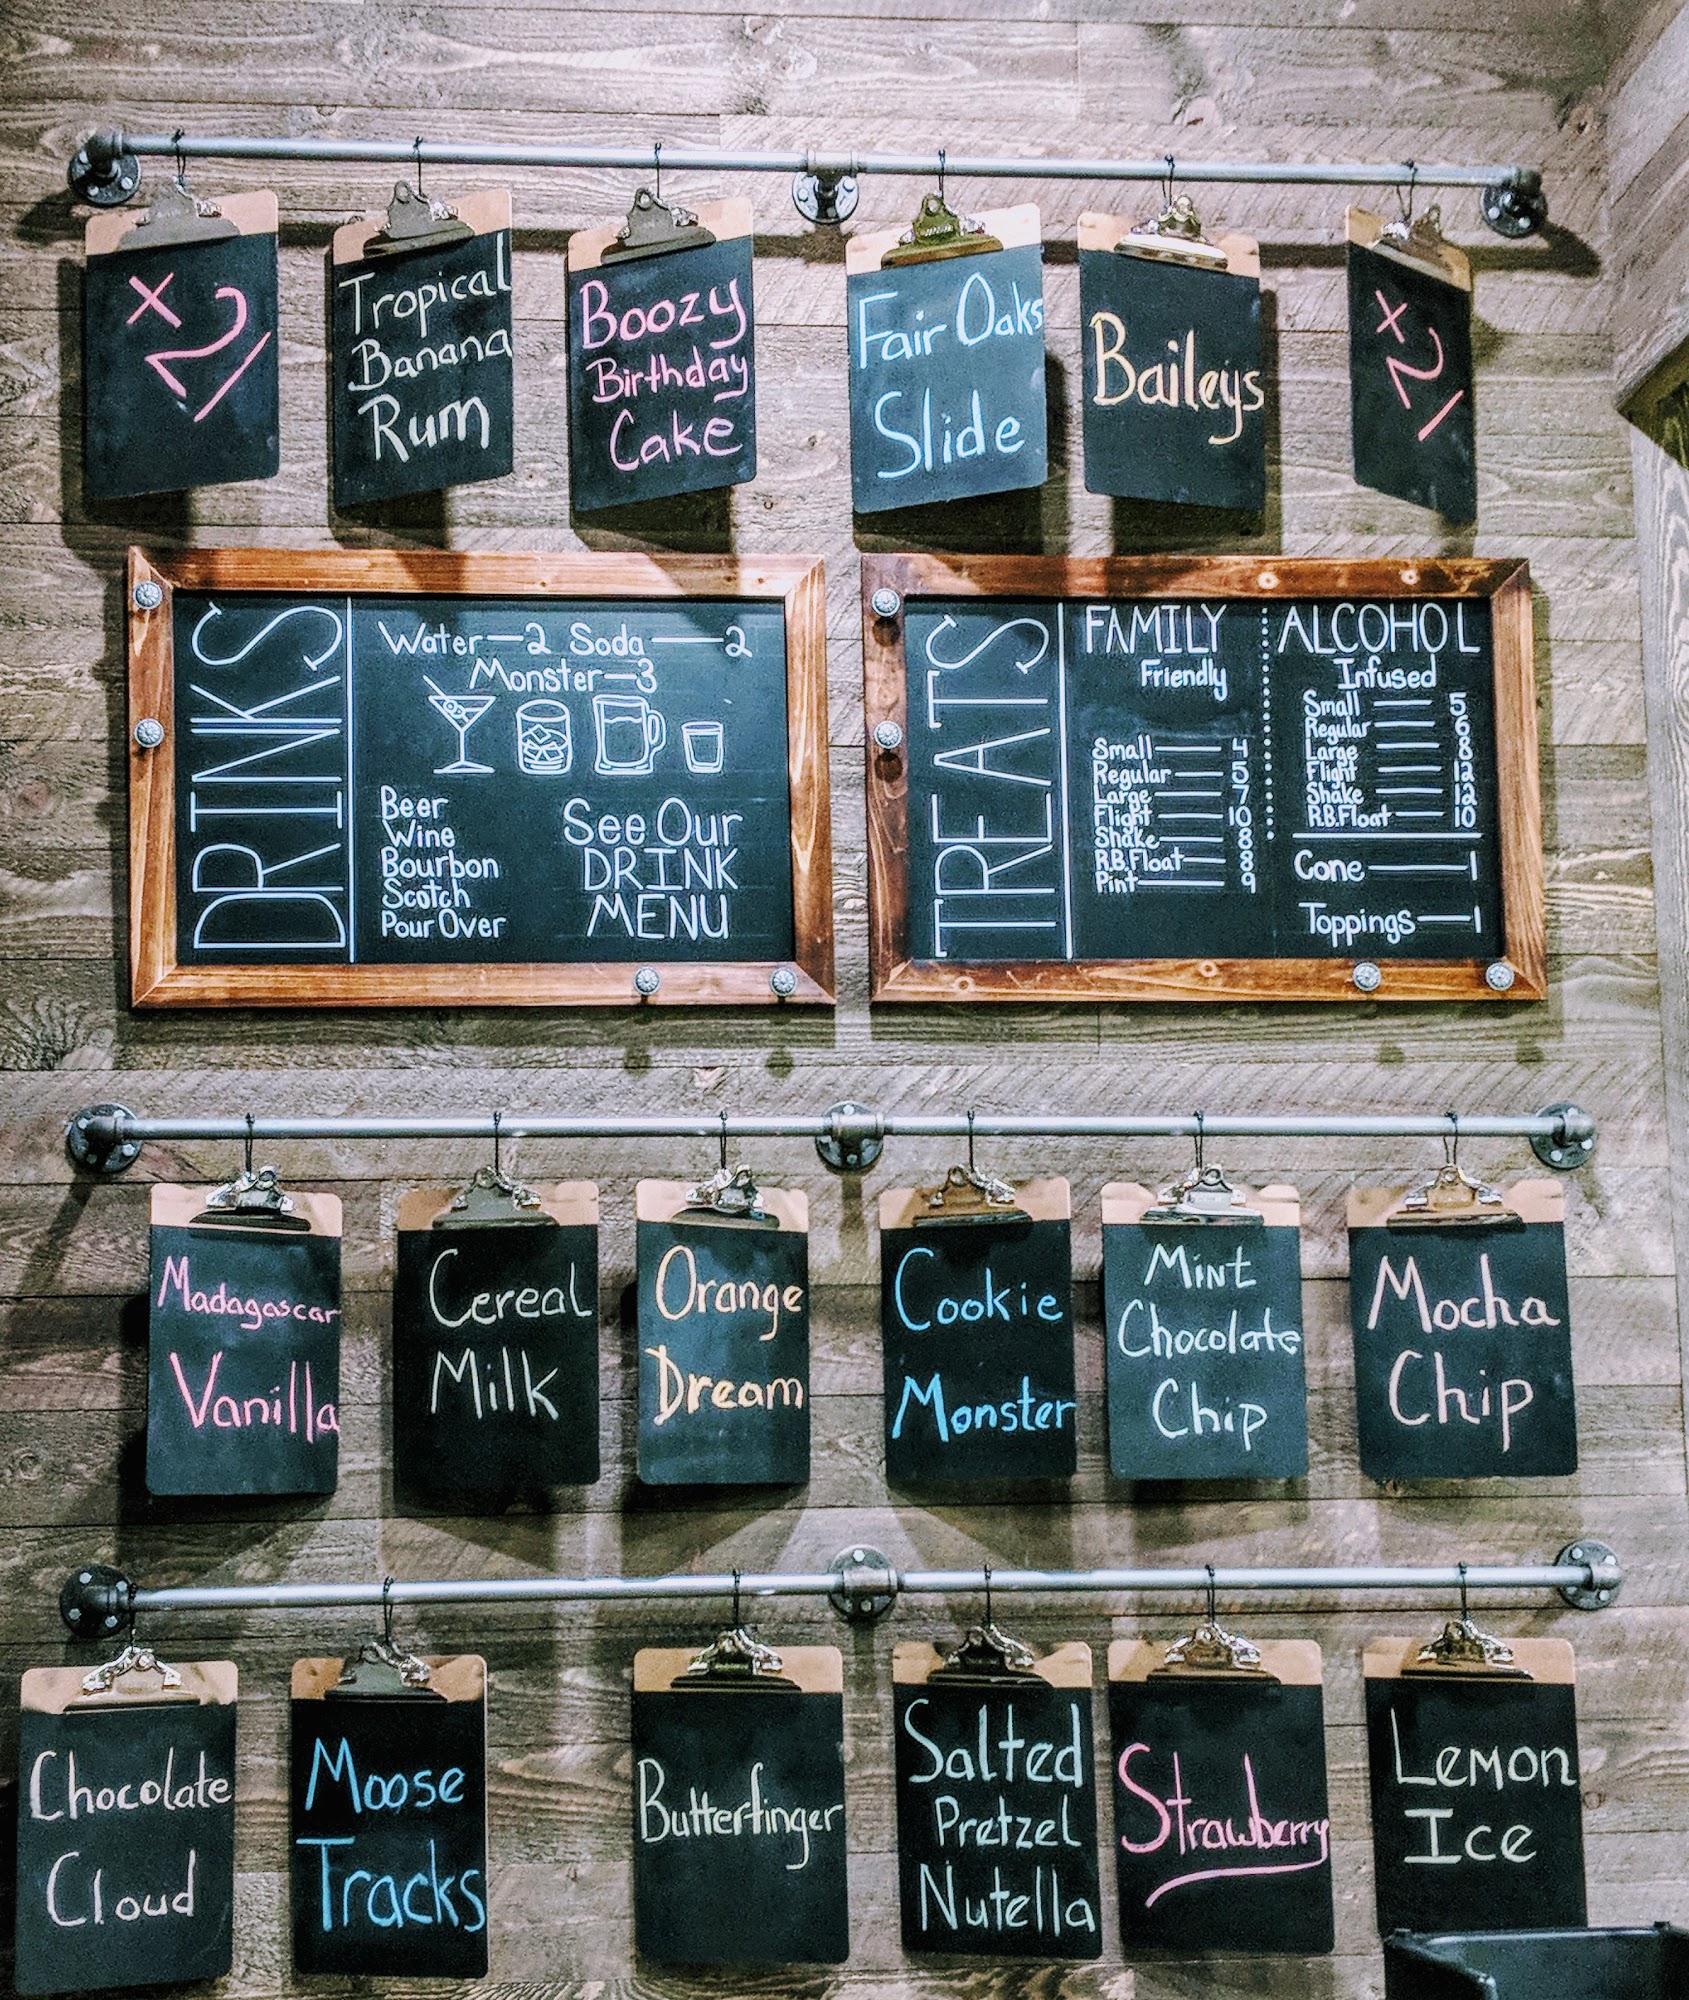 x 21
Tropical
Banana
Rum
Boozy
Birthday
Cake
Fair Oaks
Slide
Baileys
x 21
DRINKS
Water—2 Soda—2
Monster—3
Beer
Wine
Bourbon
Scotch
Pour Over
See Our
DRINK
MENU
TREATS
FAMILY
Friendly
Small—4
Regular—5
Large—7
Flight—10
Shake—8
R.B.Float—8
Pint—9
ALCOHOL
Infused
Small—5
Regular—6
Large—8
Flight—12
Shake—12
R.B.Float—10
Cone—1
Toppings—1
Madagascar
Vanilla
Cereal
Milk
Orange
Dream
Cookie
Monster
Mint
Chocolate
Chip
Mocha
Chip
Chocolate
Cloud
Moose
Tracks
Butterfinger
Salted
Pretzel
Nutella
Strawberry
Lemon
Ice